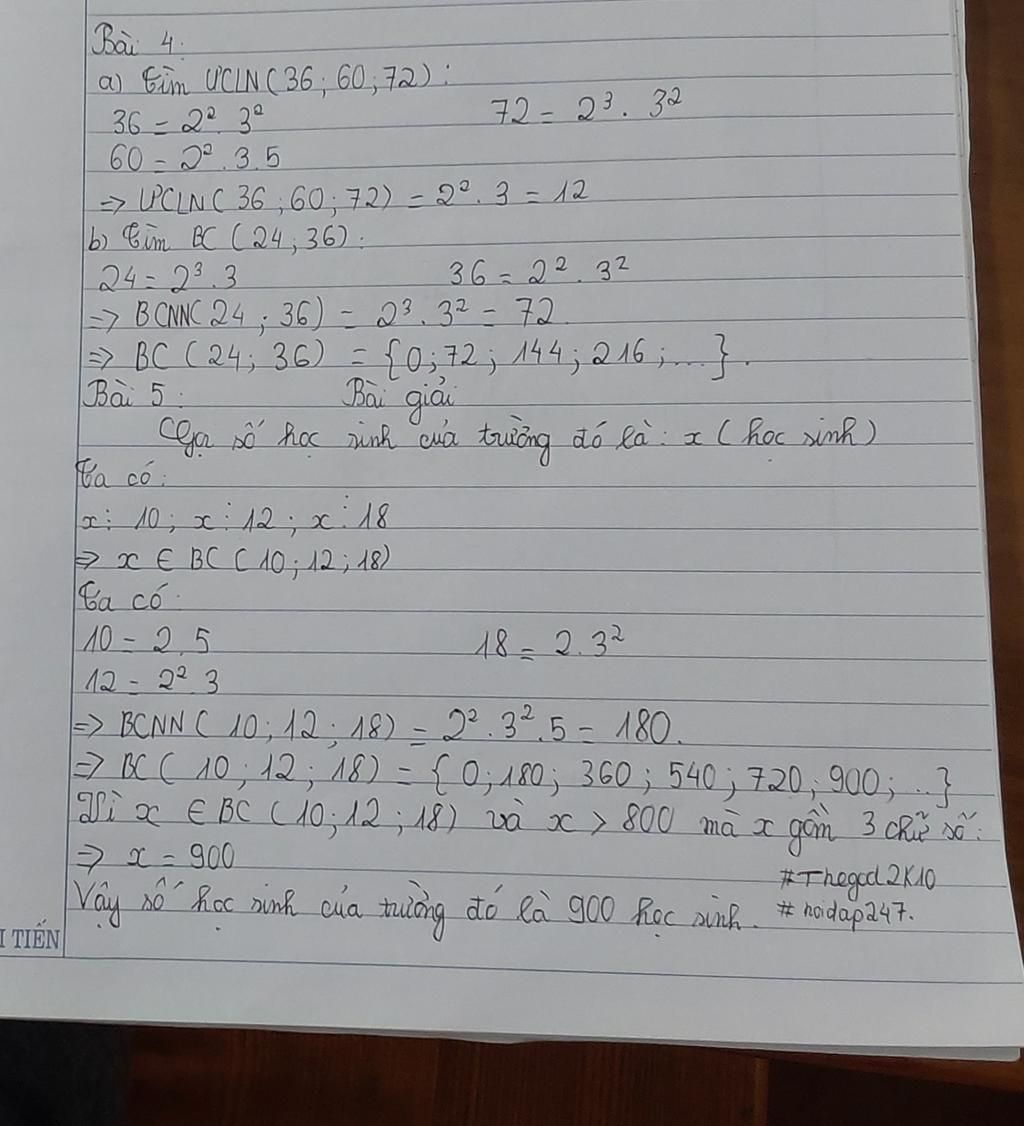 Bài 4:
a) Tìm ƯCLN(36; 60; 72):
36 = 2². 3² 72 = 2³. 3²
60 = 2². 3. 5
=> ƯCLN(36; 60; 72) = 2². 3 = 12
b) Tìm BC (24; 36):
24 = 2³. 3 36 = 2². 3²
=> BCNN(24; 36) = 2³. 3² = 72
=> BC (24; 36) = {0; 72; 144; 216; ...}.
Bài 5: Bài giải
Gọi số học sinh của trường đó là: x (học sinh)
Ta có:
x ⋮ 10; x ⋮ 12; x ⋮ 18
=> x ∈ BC (10; 12; 18)
Ta có:
10 = 2. 5 18 = 2. 3²
12 = 2². 3
=> BCNN (10; 12; 18) = 2². 3². 5 = 180.
=> BC( 10; 12; 18) = {0; 180; 360; 540; 720; 900; ..}
Vì x ∈ BC (10; 12; 18) và x > 800 mà x gồm 3 chữ số:
=> x = 900
#Thegod2K10
Vậy số học sinh của trường đó là 900 học sinh. #hoidap247.
I TIẾN